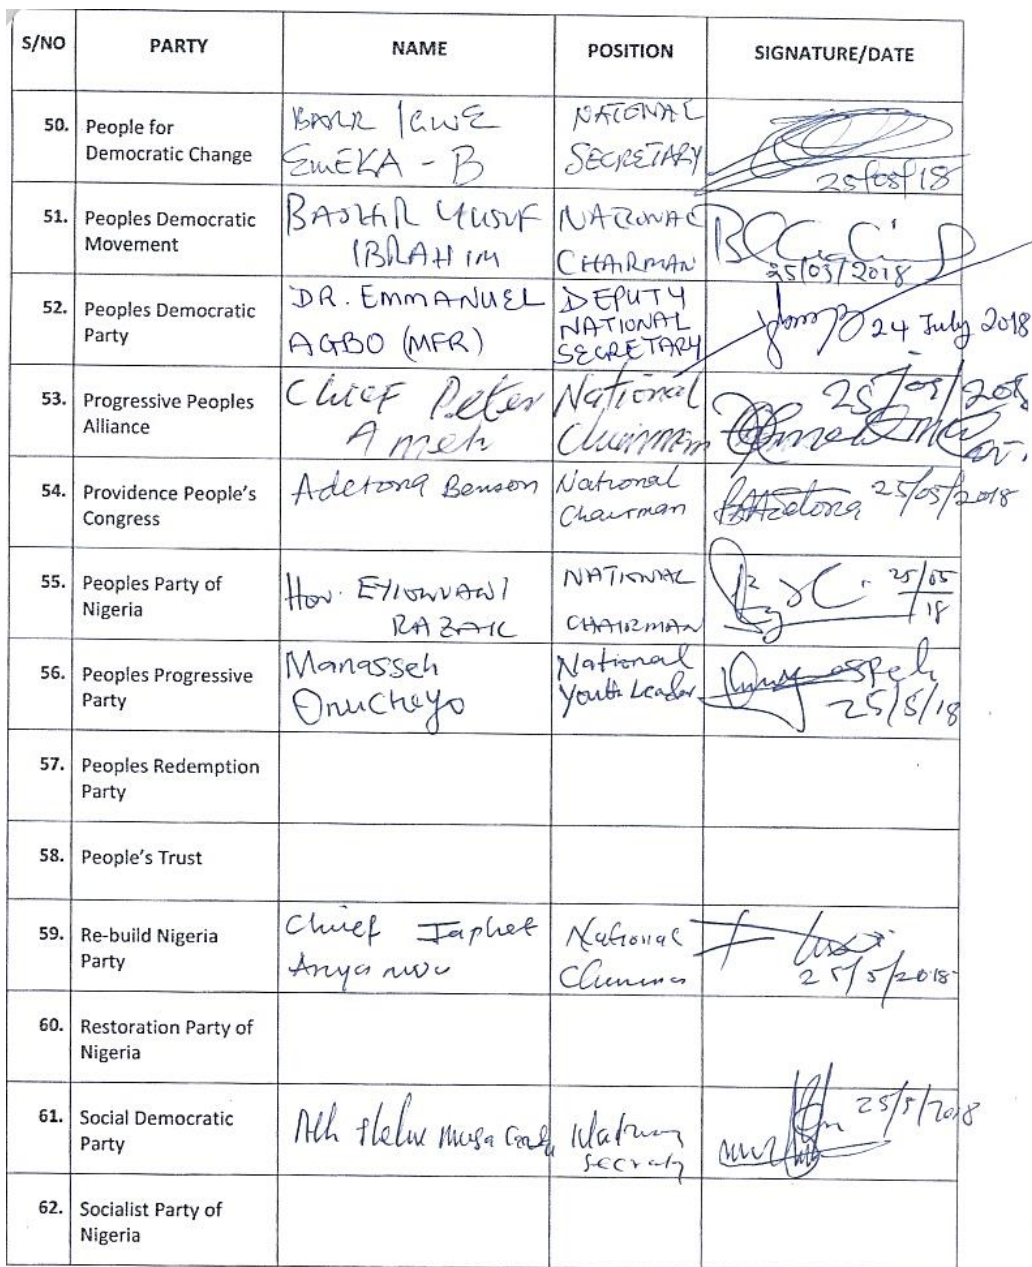 S/NO PARTY NAME POSITION SIGNATURE/DATE
50. People for Democratic Change
BARR IGWE
EMEKA - B
NATIONAL
SECRETARY
25/05/18
51. Peoples Democratic Movement
BASHIR YUSUF
IBRAHIM
NATIONAL
CHAIRMAN
25/05/2018
52. Peoples Democratic Party
DR. EMMANUEL
AGBO (MFR)
DEPUTY
NATIONAL
SECRETARY
24 July 2018
53. Progressive Peoples Alliance
Chief Peter
Ameh
National
Chairman
54. Providence People's Congress
Adetona Benson
National
Chairman
25/05/2018
55. Peoples Party of Nigeria
Hon.
RAZAK
NATIONAL
CHAIRMAN
25/05
18
56. Peoples Progressive Party
Manasseh
Onucheyo
National
Youth Leader
25/5/18
57. Peoples Redemption Party
58. People's Trust
59. Re-build Nigeria Party
Chief Japhet
Anyanwu
National
25/5/2018
60. Restoration Party of Nigeria
61. Social Democratic Party
Alh Musa
25/5/2018
62. Socialist Party of Nigeria